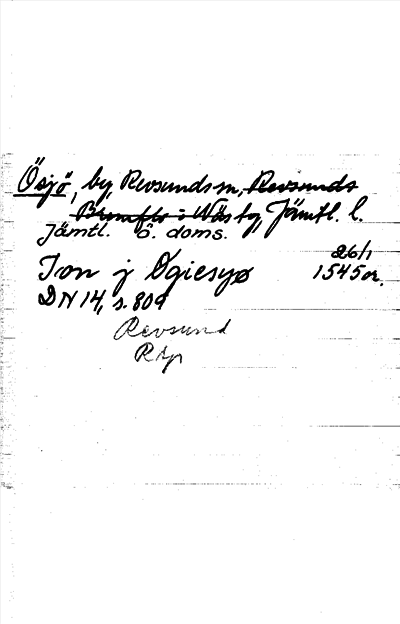 Ösjö, by, Revsunds sn, Revsunds
Brunflo - Näs tg, Jämtl. l.
Jämtl. ö. doms.
Jon j Øgiesyø 26/1 1545 or.
DN 14, s. 809
Revsund